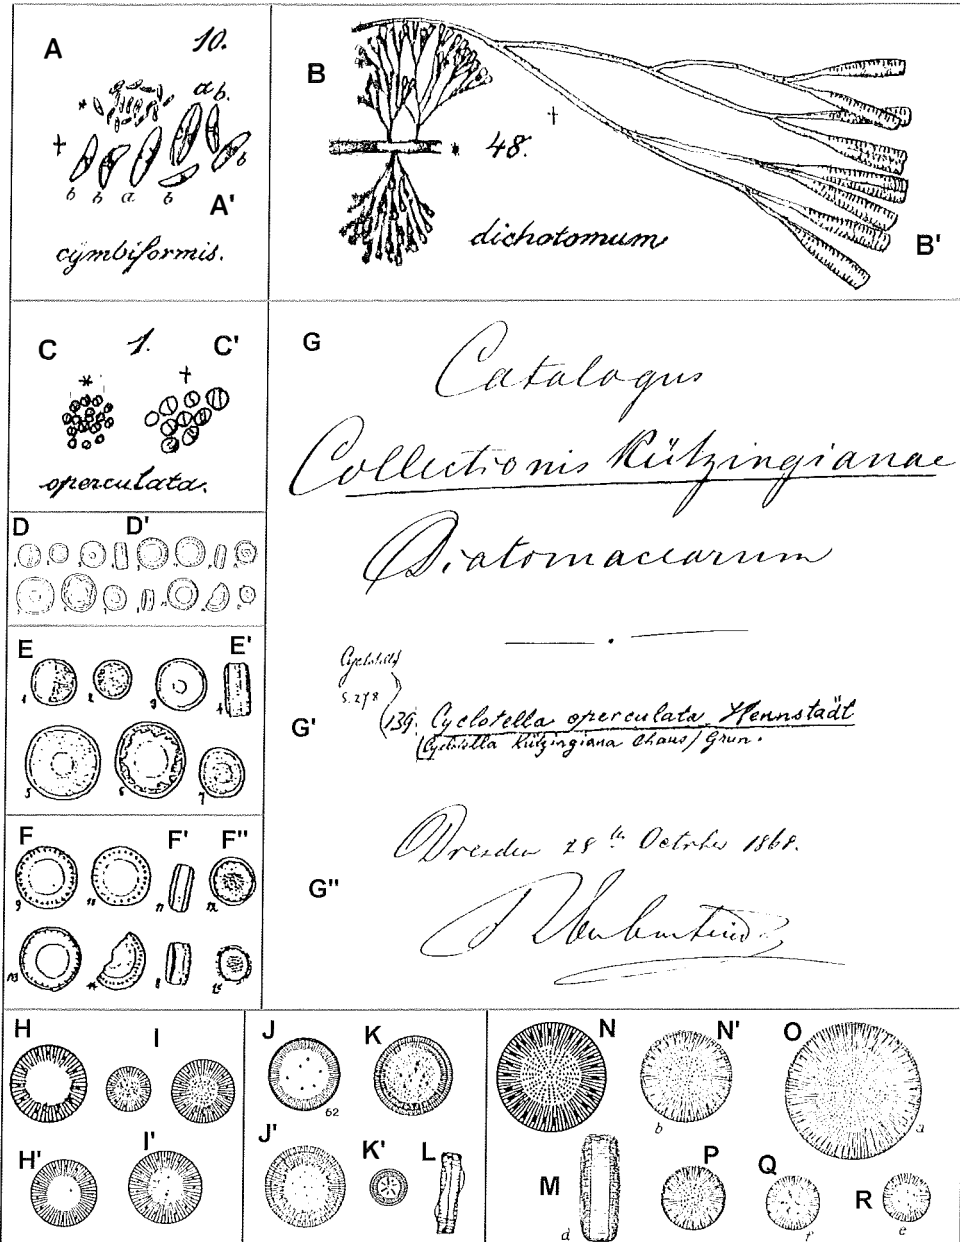 A 10.
* a b.
†
b b a b b
A'
cymbiformis.
B
†
* 48.
dichotomum
B'
C 1. C'
* †
operculata.
D D'
E E'
1 2 3 4
5 6 7
F F' F"
9 10 11 12
13 14 8 15
G
Catalogus
Collectionis Kützingianae
Diatomacearum
Cyclotella
S. 278
G' 139. Cyclotella operculata Hennstädt
(Cyclotella Kützingiana Chaus/Grun.
Dresden 28th October 1868.
G"
H I
H' I'
J K
62
J' K' L
N N' O
b a
M P Q R
d f e